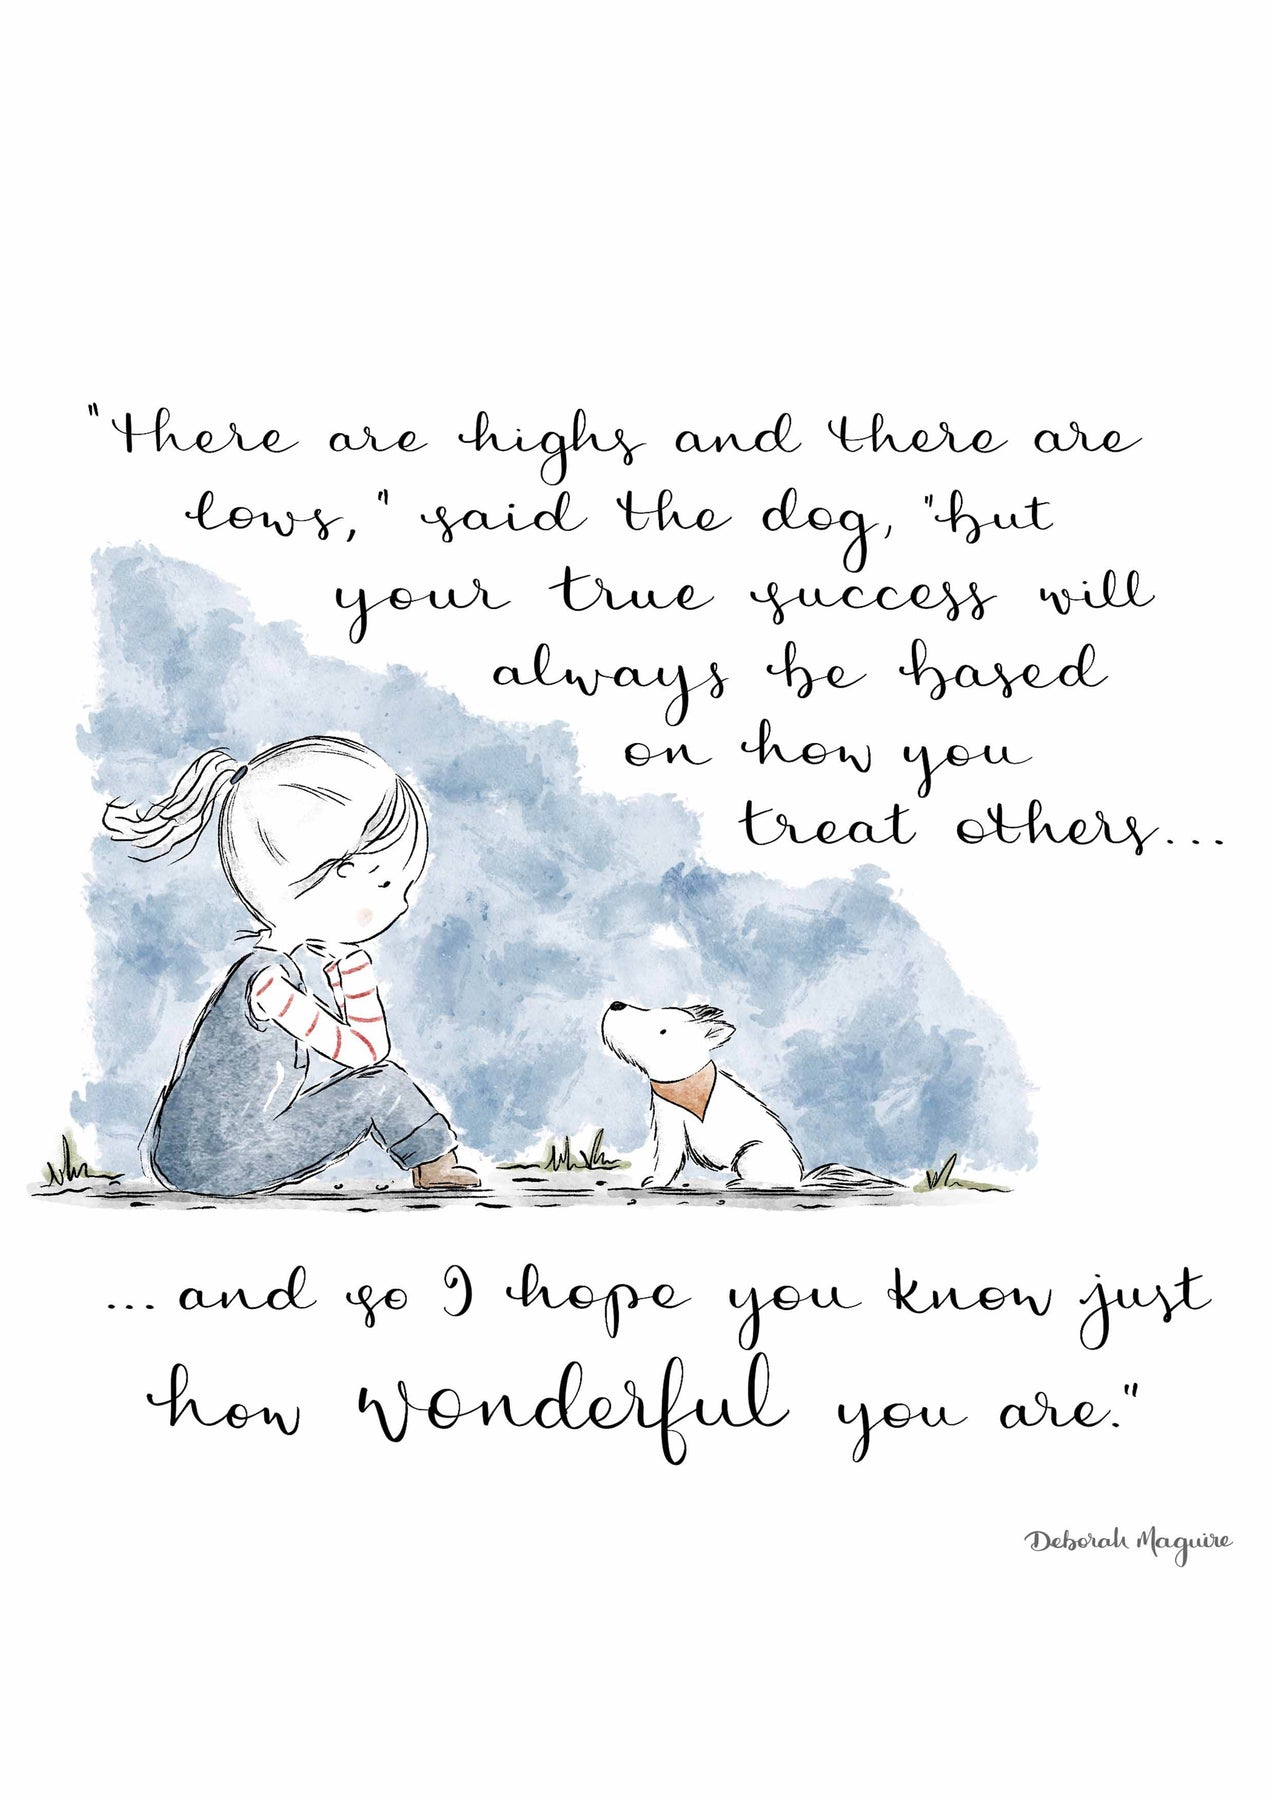 "there are highs and there are
lows," said the dog, "but
your true success will
always be based
on how you
treat others...
...and so I hope you know just
how wonderful you are."
Deborah Maguire